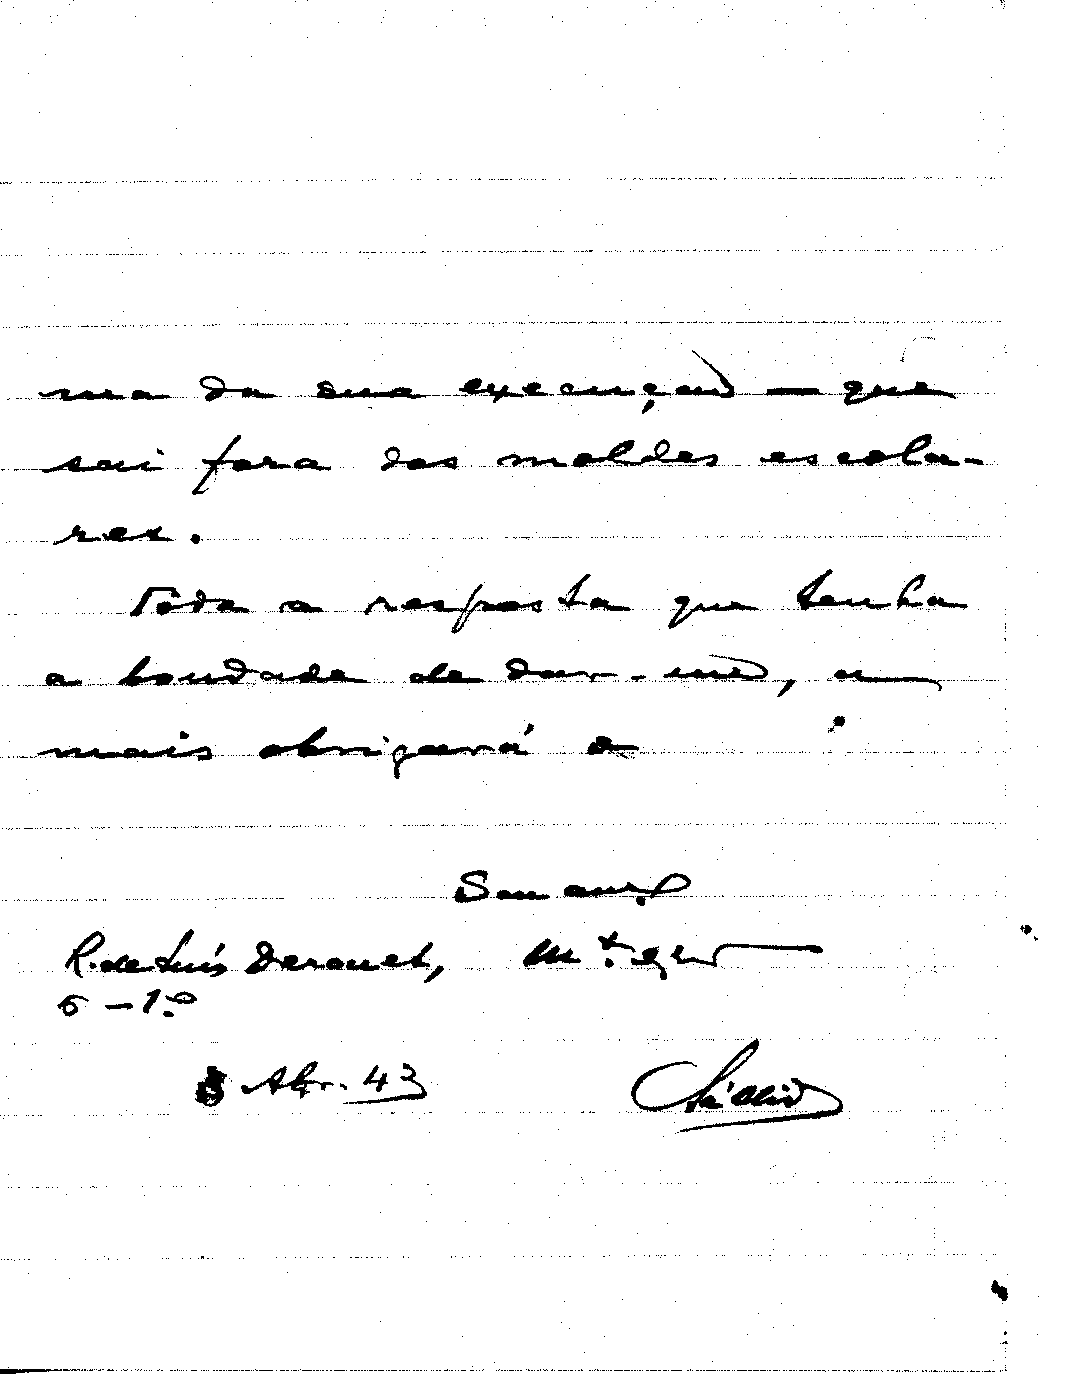 ma da sua execução — que
sai fora dos moldes escola-
res.
Toda a resposta que tenha
a bondade de dar-me, a
mais obrigará o
Seu am.º
R. de Luís Derouet, m.to
6-1.º
8 Abr. 43